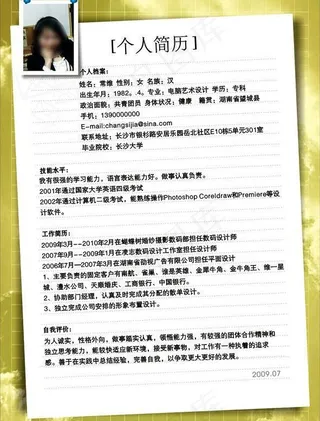 [个人简历]
个人档案:
姓名:常维 性别:女 名族:汉
出生年月:1982。.4。专业:电脑艺术设计 学历:专科
政治面貌:共青团员 身体状况:健康 籍贯:湖南省望城县
手机:1390000000
E-mail:changsijia@sina.com
联系地址:长沙市银杉路安居乐园岳北社区E10栋5单元301室
毕业院校:长沙大学
技能水平:
我有很强的学习能力,语言表达能力好。做事认真负责。
2001年通过国家大学英语四级考试
2002年通过计算机二级考试,能熟练操作Photoshop Coreldraw和Premiere等设
计软件。
工作简历:
2009年3月--2010年2月在蝴蝶树婚纱摄影数码部担任数码设计师
2007年9月--2009年1月在凌志数码设计工作室担任设计师
2006年7月—2007年3月在湖南省劲视广告有限公司担任平面设计
1、主要负责的固定客户有南航、雀巢、谁是英雄、金犀牛角、金牛角王、维一星
城、潇水公司、天顺婚庆、工商银行、中国银行。
2、协助部门经理,认真及时完成其分配的散单设计。
3、独立完成公司安排的形象布置设计。
自我评价:
为人诚实,性格外向,做事踏实认真,领悟能力强,有较强的团体合作精神和
独立思考能力,能较快适应新环境,接受新事物,对工作有一种执着的追求
感。善于在实践中总结经验,完善自我,以争取更大更好的发展。
2009.07